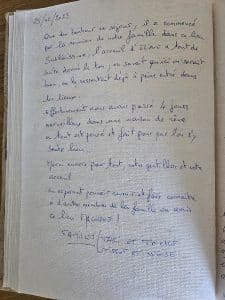 25/02/2023
Que du bonheur ce séjour, il a commencé
par la réunion de notre famille dans ce lieu
l'accueil d' a tout de
suite donné le ton, on savait qu'on serait
bien, on le ressentait déjà à peine entré dans
les lieux.
Effectivement nous avons passé 4 jours
merveilleux dans une maison de rêve
où tout est pensé et fait pour que l'on s'y
sente bien.
Merci encore pour tout, votre gentillesse et votre
accueil
en espérant pouvoir revenir et faire connaître
à d'autres membres de la famille ou amis
ce lieu MAGIQUE !
FAMILLES
ET
ET